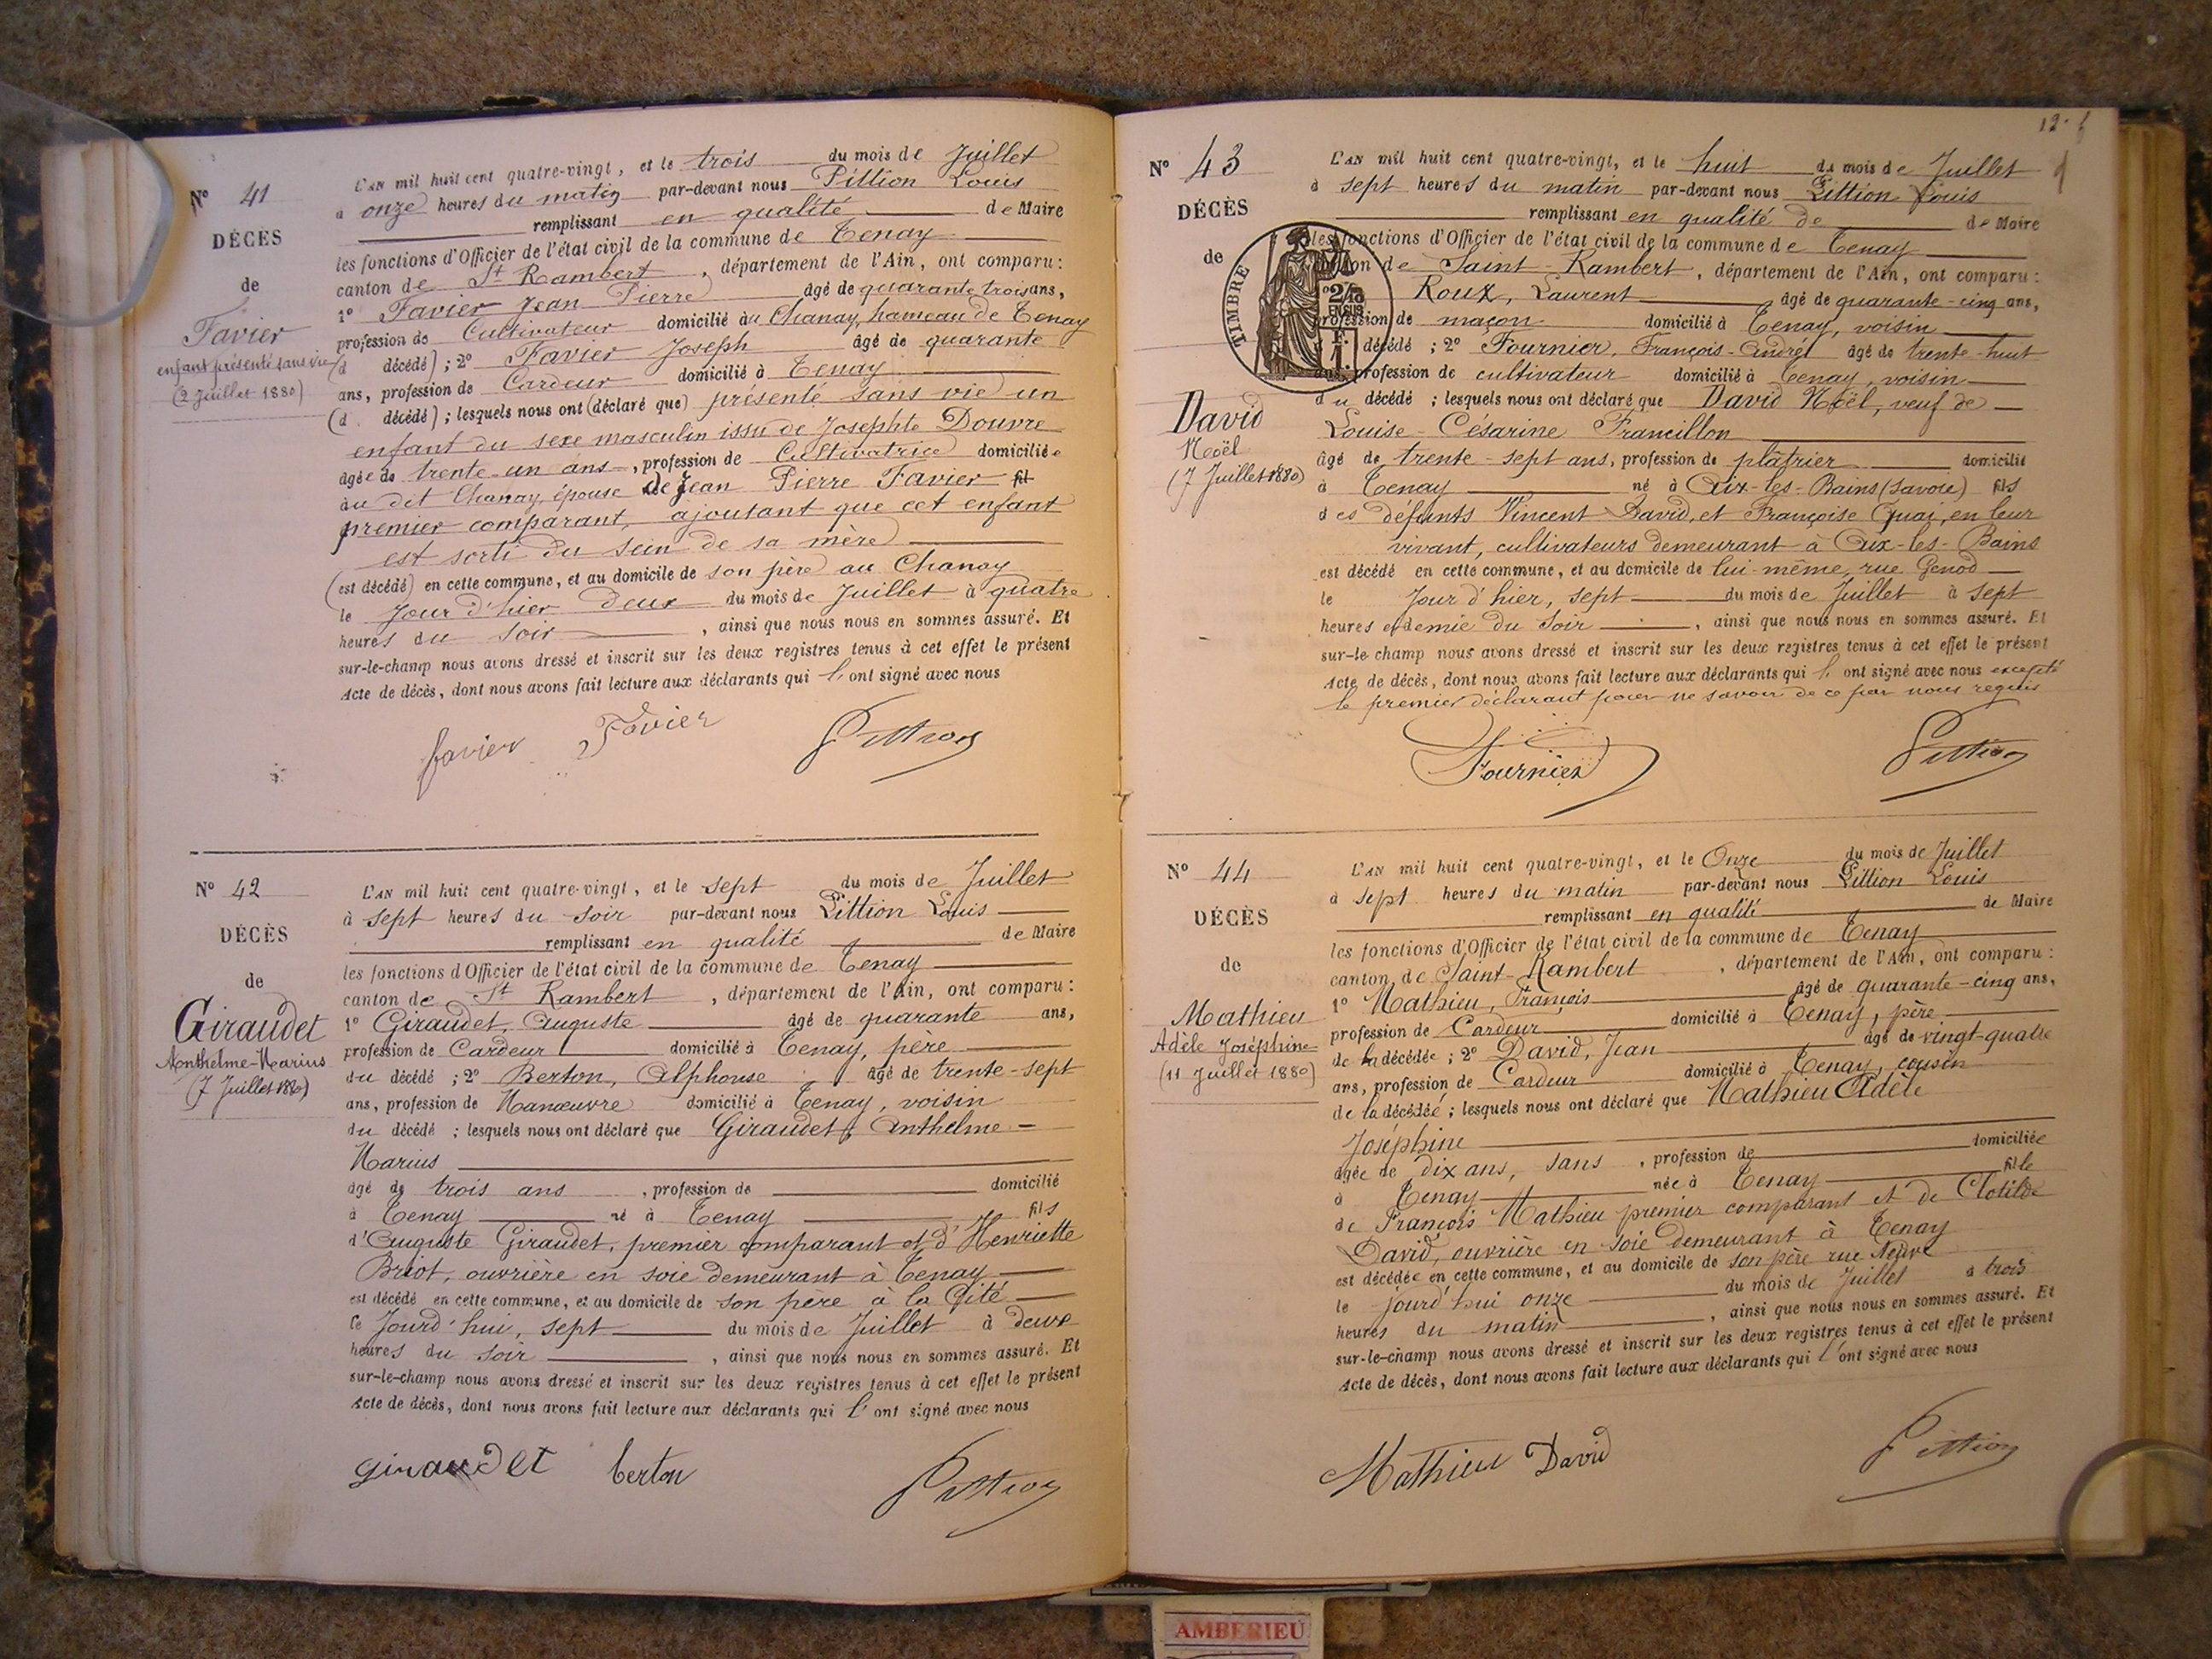 Nº 41
DÉCÈS
de
Favier
enfant présenté sans vie
(2 Juillet 1880)
L'AN mil huit cent quatre-vingt, et le trois du mois de Juillet
à onze heures du matin par-devant nous Pittion Louis
remplissant en qualité de Maire
les fonctions d'Officier de l'état civil de la commune de Tenay
canton de St Rambert, département de l'Ain, ont comparu:
1º Favier Jean Pierre âgé de quarante trois ans,
profession de Cultivateur domicilié au Chanay, hameau de Tenay
(d décédé); 2º Favier Joseph âgé de quarante
ans, profession de Cardeur domicilié à Tenay
(d décédé); lesquels nous ont (déclaré que) présenté sans vie un
enfant du sexe masculin issu de Josephte Douvre
âgée de trente-un ans, profession de Cultivatrice domiciliée
au dit Chanay, épouse de Jean Pierre Favier fil
premier comparant, ajoutant que cet enfant
est sorti du sein de sa mère
(est décédé) en cette commune, et au domicile de son père au Chanay
le Jour d'hier deux du mois de Juillet à quatre
heures du soir, ainsi que nous nous en sommes assuré. Et
sur-le-champ nous avons dressé et inscrit sur les deux registres tenus à cet effet le présent
acte de décès, dont nous avons fait lecture aux déclarants qui l'ont signé avec nous
favier Favier Pittion
Nº 42
DÉCÈS
de
Giraudet
Anthelme-Marius
(7 Juillet 1880)
L'AN mil huit cent quatre-vingt, et le sept du mois de Juillet
à sept heures du soir par-devant nous Pittion Louis
remplissant en qualité de Maire
les fonctions d'Officier de l'état civil de la commune de Tenay
canton de St Rambert, département de l'Ain, ont comparu:
1º Giraudet, Auguste âgé de quarante ans,
profession de Cardeur domicilié à Tenay, père
du décédé; 2º Berton, Alphonse âgé de trente-sept
ans, profession de Manœuvre domicilié à Tenay, voisin
du décédé; lesquels nous ont déclaré que Giraudet, Anthelme-
Marius
âgé de trois ans, profession de domicilié
à Tenay né à Tenay fils
d'Auguste Giraudet, premier comparant et d'Henriette
Briot, ouvrière en soie demeurant à Tenay
est décédé en cette commune, et au domicile de son père à la Cité
le Jourd'hui, sept du mois de Juillet à deux
heures du soir, ainsi que nous nous en sommes assuré. Et
sur-le-champ nous avons dressé et inscrit sur les deux registres tenus à cet effet le présent
acte de décès, dont nous avons fait lecture aux déclarants qui l'ont signé avec nous
giraudet berton Pittion
12
Nº 43
DÉCÈS
de
David
Noël
(7 Juillet 1880)
TIMBRE
2/10
EN SUS
F.
1.
L'AN mil huit cent quatre-vingt, et le huit du mois de Juillet
à sept heures du matin par-devant nous Pittion Louis
remplissant en qualité de de Maire
les fonctions d'Officier de l'état civil de la commune de Tenay
canton de Saint-Rambert, département de l'Ain, ont comparu:
Roux, Laurent âgé de quarante-cinq ans,
profession de maçon domicilié à Tenay, voisin
décédé; 2º Fournier, François-André âgé de trente-huit
ans, profession de cultivateur domicilié à Tenay, voisin
du décédé; lesquels nous ont déclaré que David Noël, veuf de
Louise-Césarine Francillon
âgé de trente-sept ans, profession de plâtrier domicilié
à Tenay né à Aix-les-Bains (Savoie) fils
des défunts Vincent David, et Françoise Quai, en leur
vivant, cultivateurs demeurant à Aix-les-Bains
est décédé en cette commune, et au domicile de lui-même, rue Genod
le Jour d'hier, sept du mois de Juillet à sept
heures et demie du soir, ainsi que nous nous en sommes assuré. Et
sur-le champ nous avons dressé et inscrit sur les deux registres tenus à cet effet le présent
acte de décès, dont nous avons fait lecture aux déclarants qui l'ont signé avec nous excepté
le premier déclarant pour ne savoir de ce par nous requis
Fournier Pittion
Nº 44
DÉCÈS
de
Mathieu
Adèle Joséphine
(11 Juillet 1880)
L'AN mil huit cent quatre-vingt, et le Onze du mois de Juillet
à sept heures du matin par-devant nous Pittion Louis
remplissant en qualité de Maire
les fonctions d'Officier de l'état civil de la commune de Tenay
canton de Saint-Rambert, département de l'Ain, ont comparu:
1º Mathieu, François âgé de quarante-cinq ans,
profession de Cardeur domicilié à Tenay, père
de la décédée; 2º David, Jean âgé de vingt-quatre
ans, profession de Cardeur domicilié à Tenay, cousin
de la décédée; lesquels nous ont déclaré que Mathieu Adèle
Joséphine
âgée de dix ans, sans, profession de domiciliée
à Tenay née à Tenay fille
de François Mathieu premier comparant et de Clotilde
David, ouvrière en soie demeurant à Tenay
est décédée en cette commune, et au domicile de son père rue Neuve
le jourd'hui onze du mois de Juillet à trois
heures du matin, ainsi que nous nous en sommes assuré. Et
sur-le-champ nous avons dressé et inscrit sur les deux registres tenus à cet effet le présent
acte de décès, dont nous avons fait lecture aux déclarants qui l'ont signé avec nous
Mathieu David Pittion
AMBERIEU